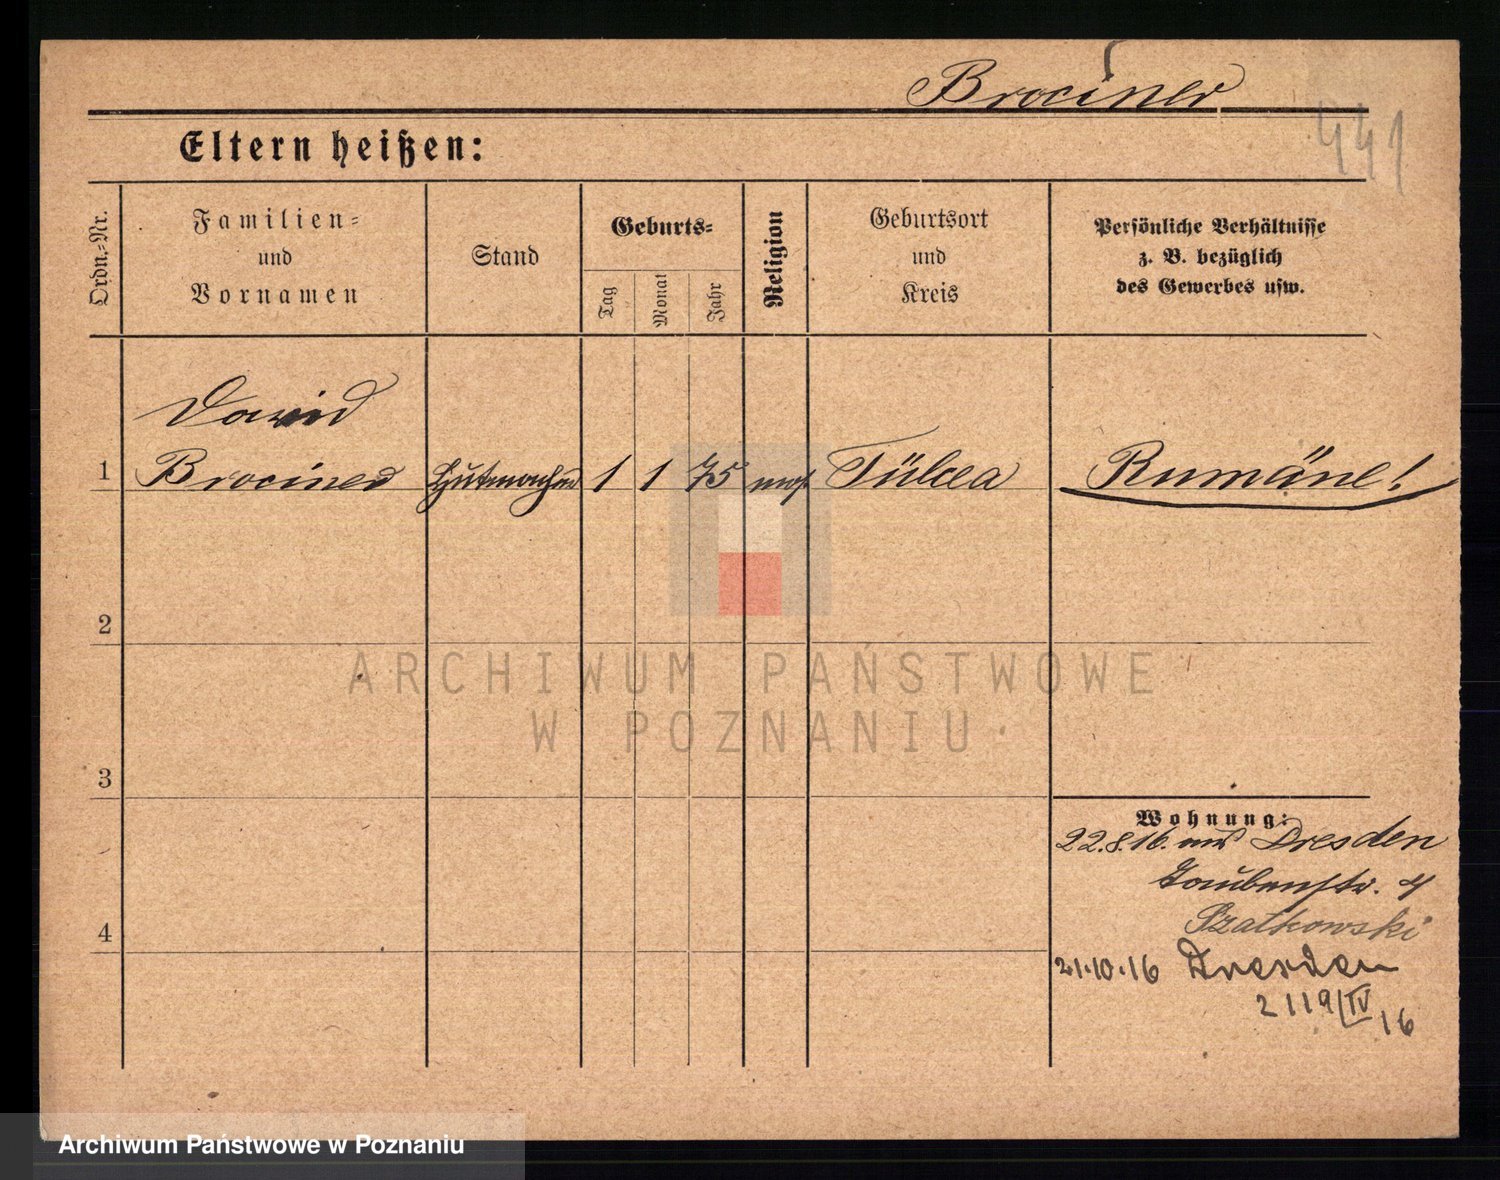 Brociner
441
Eltern heißen:
Ordn.-Nr.
Familien-
und
Vornamen
Stand
Geburts-
Tag
Monat
Jahr
Religion
Geburtsort
und
Kreis
Persönliche Verhältnisse
z. B. bezüglich
des Gewerbes usw.
David
1 Brociner Hutmacher 1 1 75 mos. Tülcea Rumäne!
2
3
Wohnung:
22.8.16. aus Dresden
Taubenstr. 4
Szatkowski
4
21.10.16 Dresden
2119/IV 16
ARCHIWUM PAŃSTWOWE
W POZNANIU
Archiwum Państwowe w Poznaniu